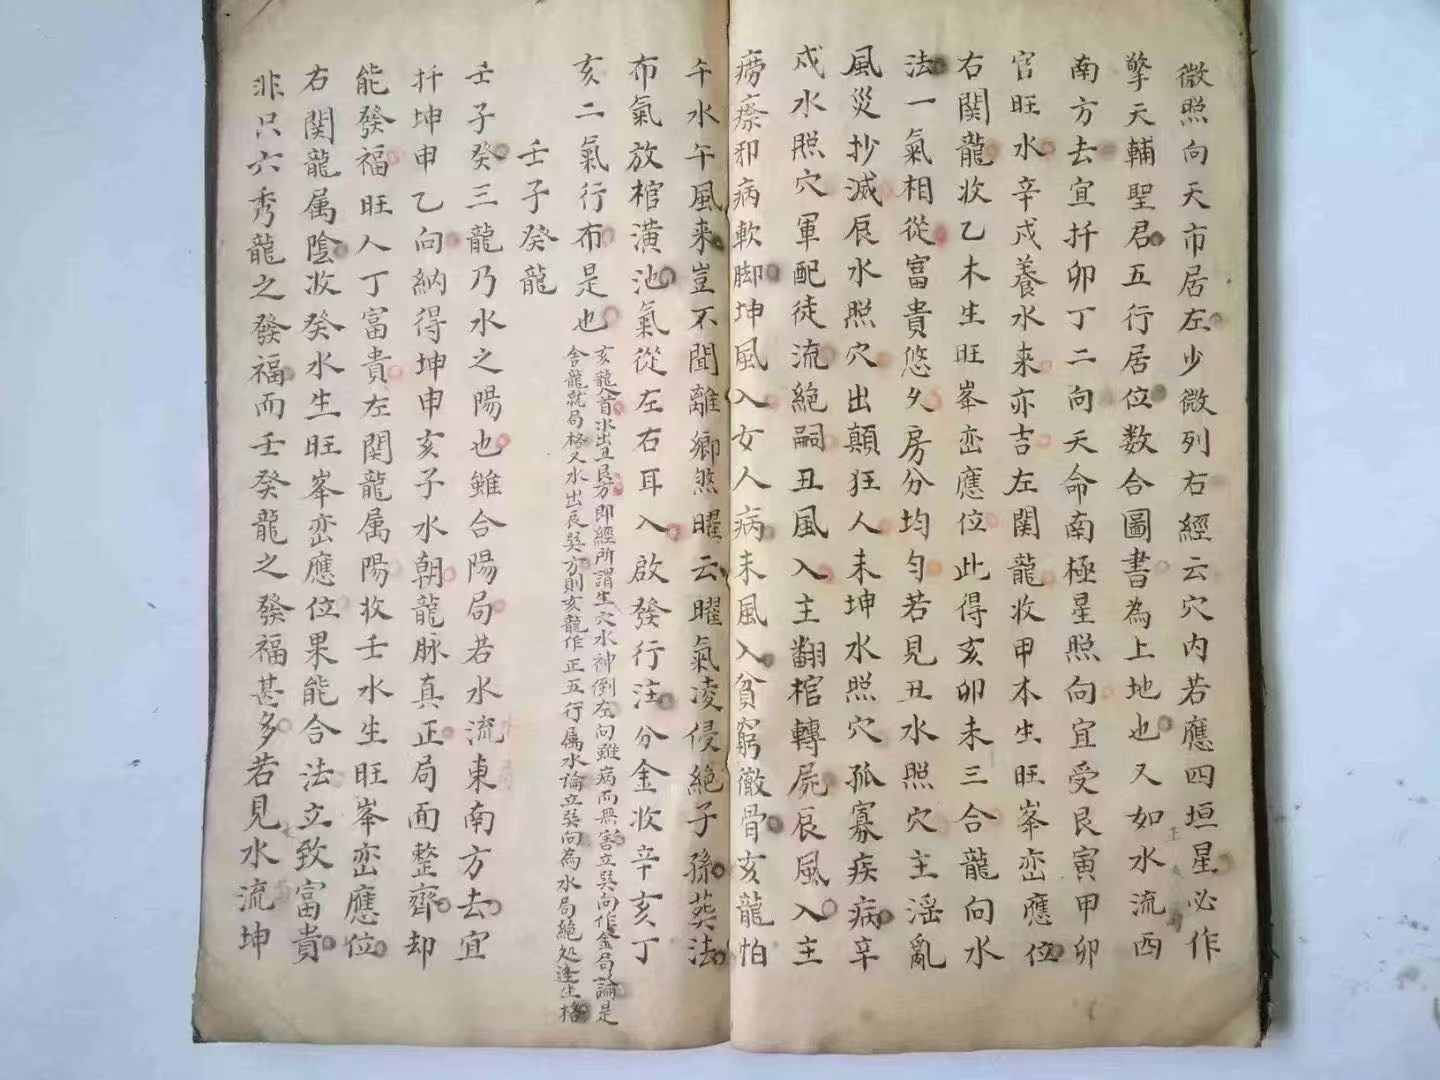 微照向天市居左少微列右經云穴内若應四垣星必作
擎天輔聖君五行居位数合圖書為上地也又如水流西
南方去宜扦卯丁二向天命南極星照向宜受艮寅甲卯
官旺水辛戌養水来亦吉左関龍收甲木生旺峯峦應位
右関龍收乙木生旺峯峦應位此得亥卯未三合龍向水
法一氣相從富貴悠久房分均匀若見丑水照穴主淫亂
風災抄滅辰水照穴出顛狂人未坤水照穴孤寡疾病辛
戍水照穴軍配徒流絶嗣丑風入主翻棺轉屍辰風入主
痨瘵邪病軟脚坤風入女人病未風入貧窮徹骨亥龍怕
午水午風来豈不聞離鄉煞曜云曜氣凌侵絶子孫葬法
布氣放棺潢池氣從左右耳入啟發行注分金收辛亥丁
亥二氣行布是也
亥龍入首水出丑艮方即經所謂生穴水神倒左向雖病而無害立巽向作金局論是
舍龍就局格又水出辰巽方則亥龍作正五行属水論立巽向為水局絶处逢生格
壬子癸龍
壬子癸三龍乃水之陽也雖合陽局若水流東南方去宜
扦坤申乙向納得坤申亥子水朝龍脉真正局面整齊却
能發福旺人丁富貴左関龍属陽收壬水生旺峯峦應位
右関龍属陰收癸水生旺峯峦應位果能合法立致富貴
非只六秀龍之發福而壬癸龍之發福甚多若見水流坤